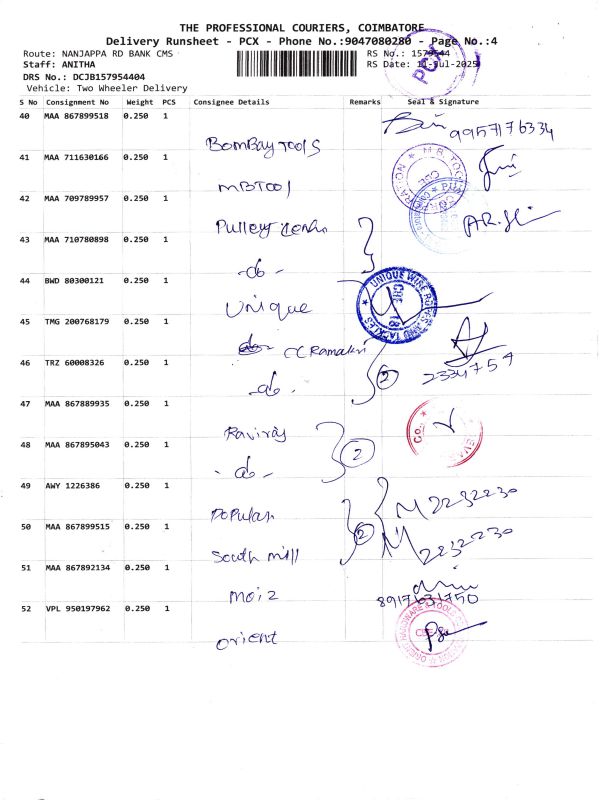 THE PROFESSIONAL COURIERS, COIMBATORE
Delivery Runsheet - PCX - Phone No.:9047080280 - Page No.:4
Route: NANJAPPA RD BANK CMS
RS No.:
Staff: ANITHA
RS Date: -Jul-2025
PCX
DRS No.: DCJB157954404
Vehicle: Two Wheeler Delivery
S No Consignment No Weight PCS Consignee Details Remarks Seal & Signature
40 MAA 867899518 0.250 1
BomBay TOOLS
9957176334
41 MAA 711630166 0.250 1
MBTOOl
42 MAA 709789957 0.250 1
Pulley
43 MAA 710780898 0.250 1
-do-
44 BWD 80300121 0.250 1
Unique
UNIQUE WIRE ROPES AND TACKLES
45 TMG 200768179 0.250 1
CC Ramakri
2334759
46 TRZ 60008326 0.250 1
-do-
2
47 MAA 867889935 0.250 1
Raviraj
2
48 MAA 867895043 0.250 1
-do-
49 AWY 1226386 0.250 1
Popular
2232230
50 MAA 867899515 0.250 1
South mill
2
2232230
51 MAA 867892134 0.250 1
moiz
8917631750
52 VPL 950197962 0.250 1
orient